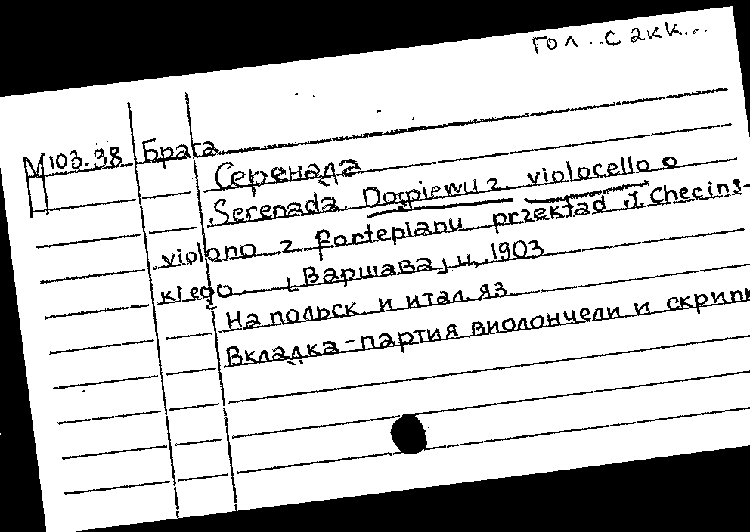 гол.. с акк...
М103.98 Брага
Серенада
Serenada Dospiewu z violocello o
violono z fortepianu przekład J. Checins-
kiego [Варшава] и, 1903
На польск и итал. яз
Вкладка-партия виолончели и скрипк